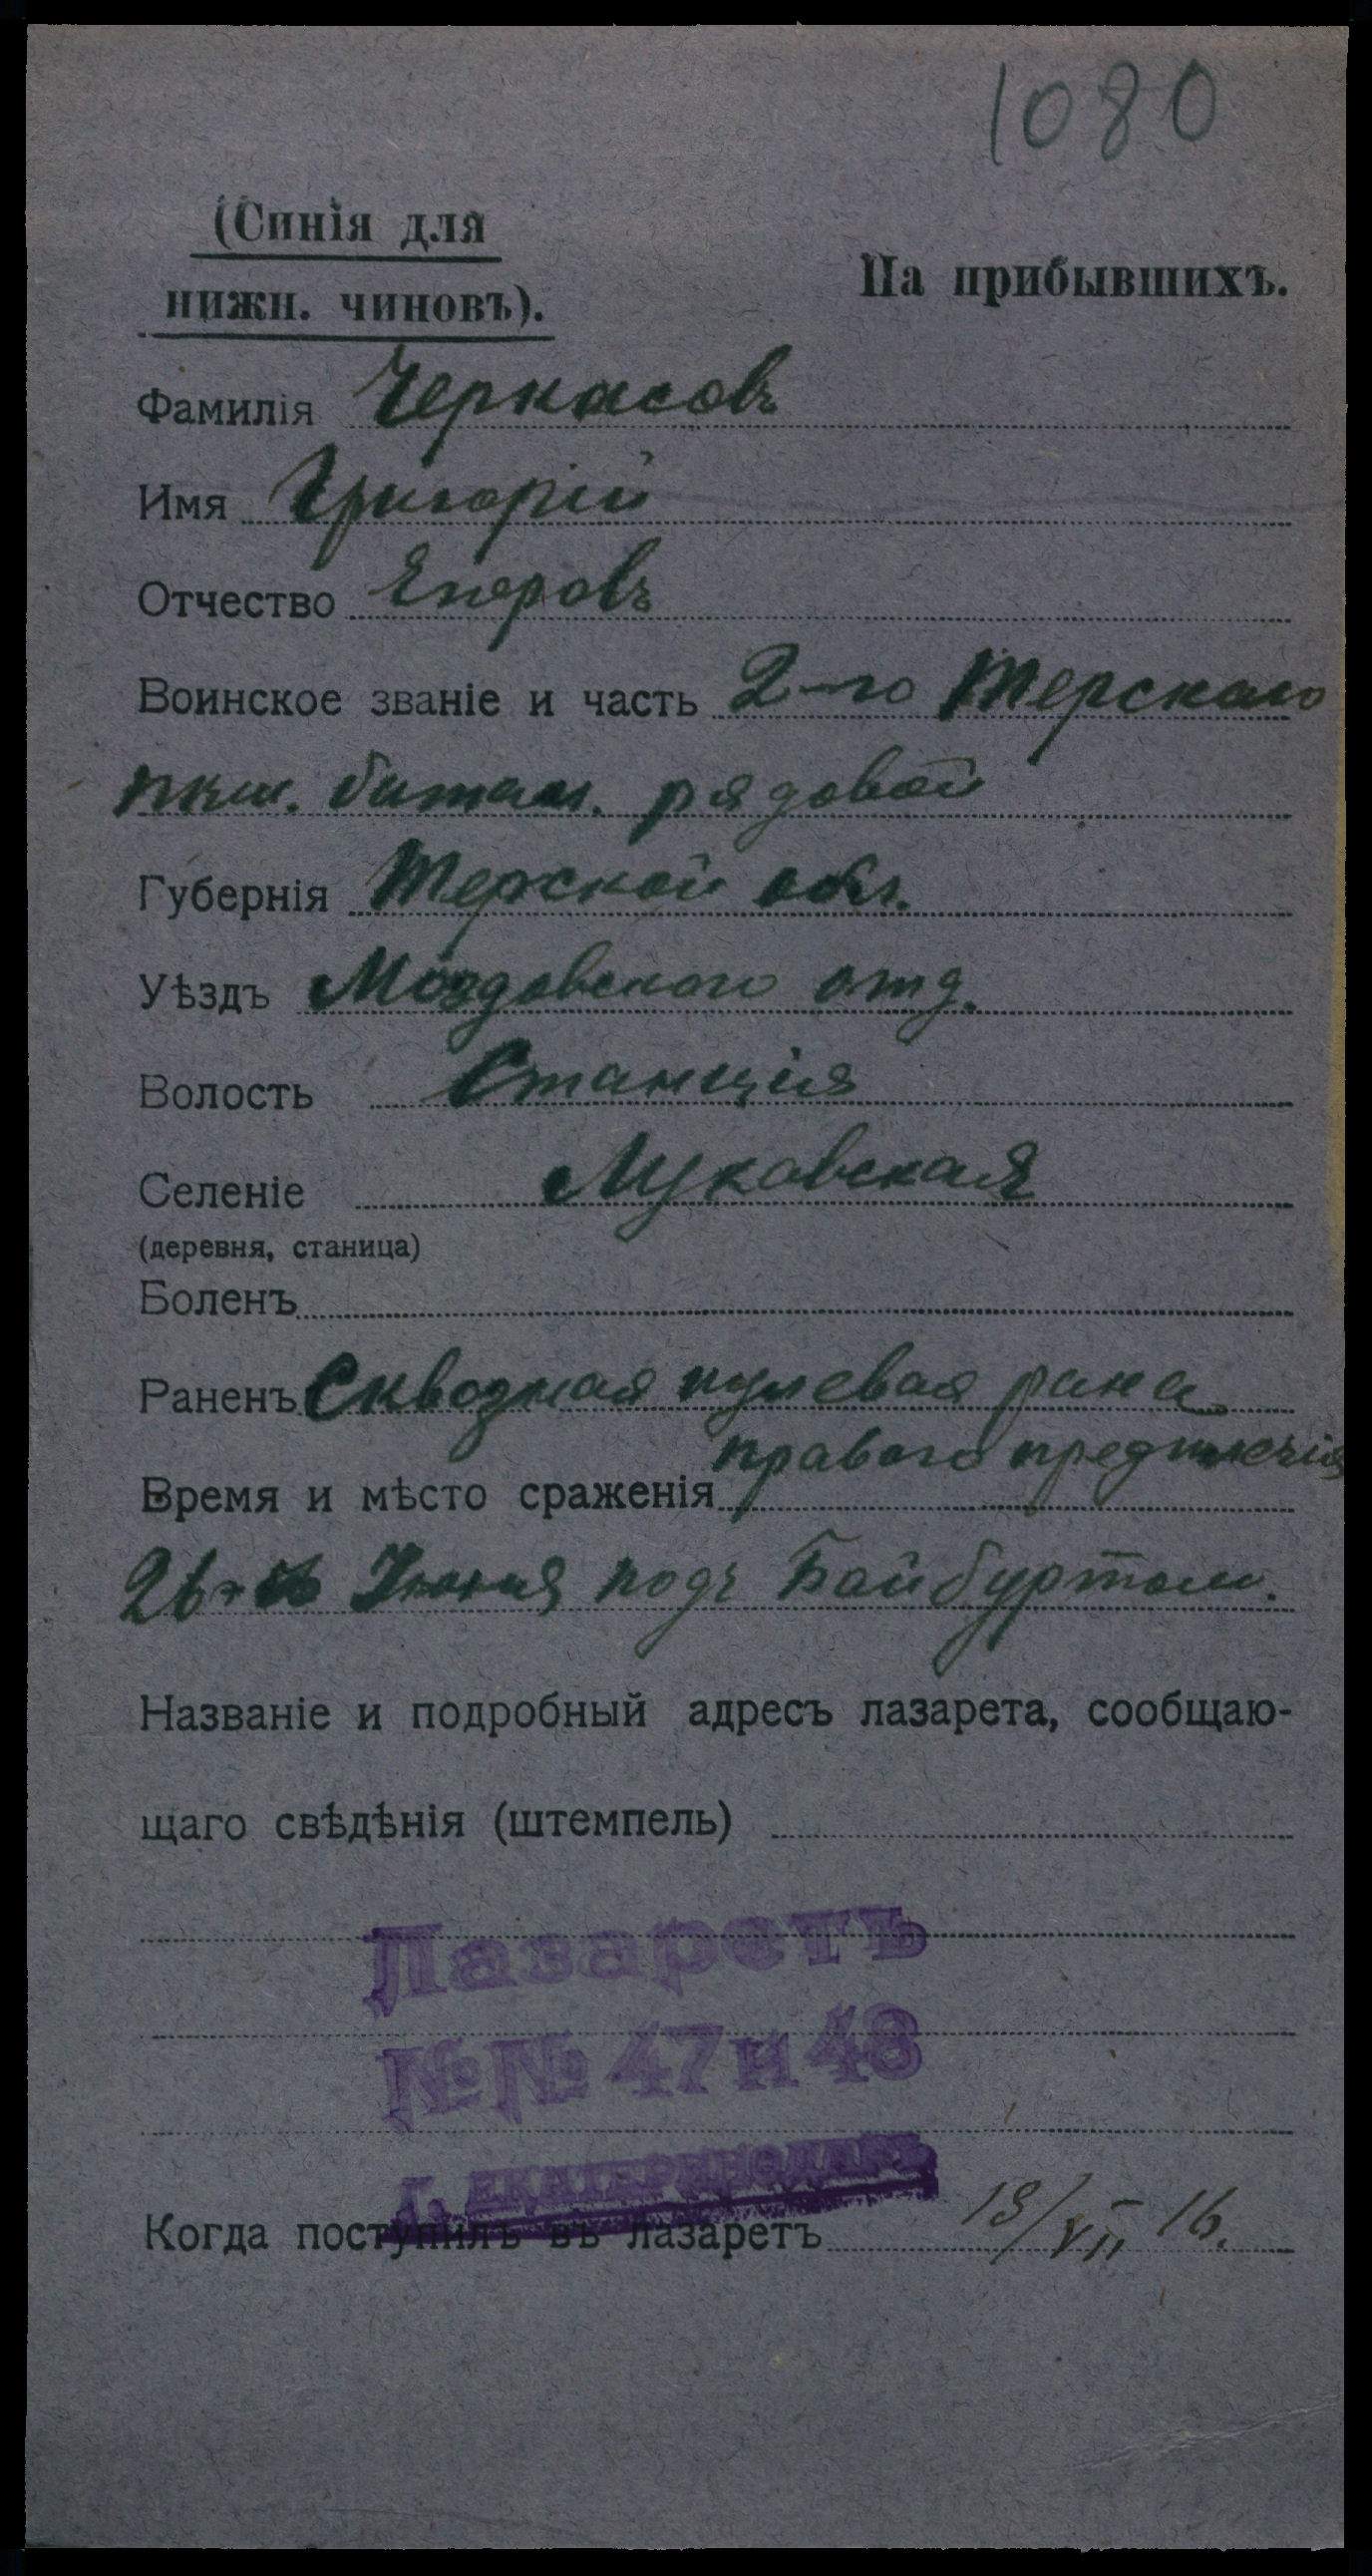 1080
(Синія для
нижн. чиновъ).
На прибывшихъ.
Фамилія Черкасовъ
Имя Григорій
Отчество Егоровъ
Воинское званіе и часть 2-го Терскаго
пкш. батал. рядовой
Губернія Терской обл.
Уѣздъ Моздовского отд.
Волость Станція
Селеніе Луковская
(деревня, станица)
Боленъ
Раненъ Сквозная пулевая рана
праваго предплечія
Время и мѣсто сраженія
26-го Іюня подъ Байбуртом.
Названіе и подробный адресъ лазарета, сообщаю-
щаго свѣдѣнія (штемпель)
Лазаретъ
№№ 47 и 48
Г. ЕКАТЕРИНОДАРЪ
Когда поступилъ въ лазаретъ 13/VII 16.